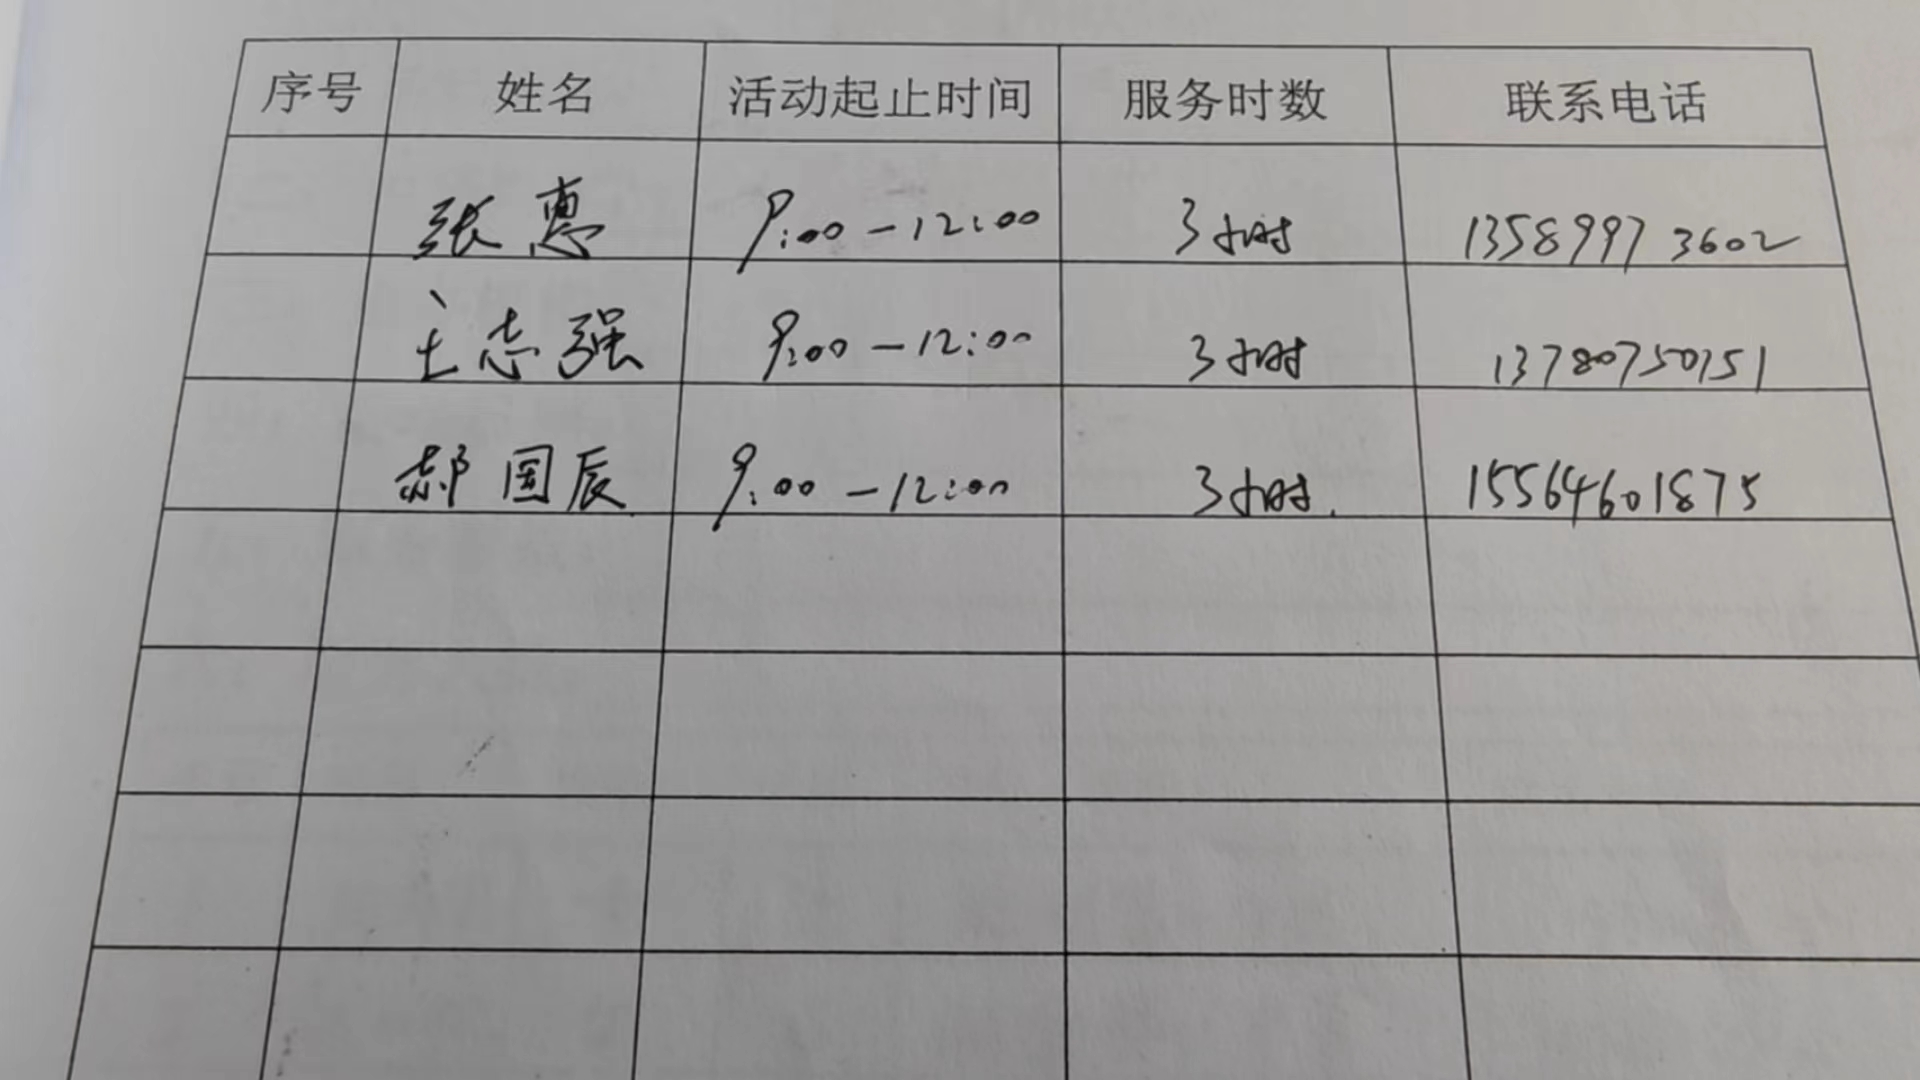 序号 姓名 活动起止时间 服务时数 联系电话
张惠 9:00-12:00 3小时 13589973602
王志强 9:00-12:00 3小时 13780750151
郝国辰 9:00-12:00 3小时. 15564601875